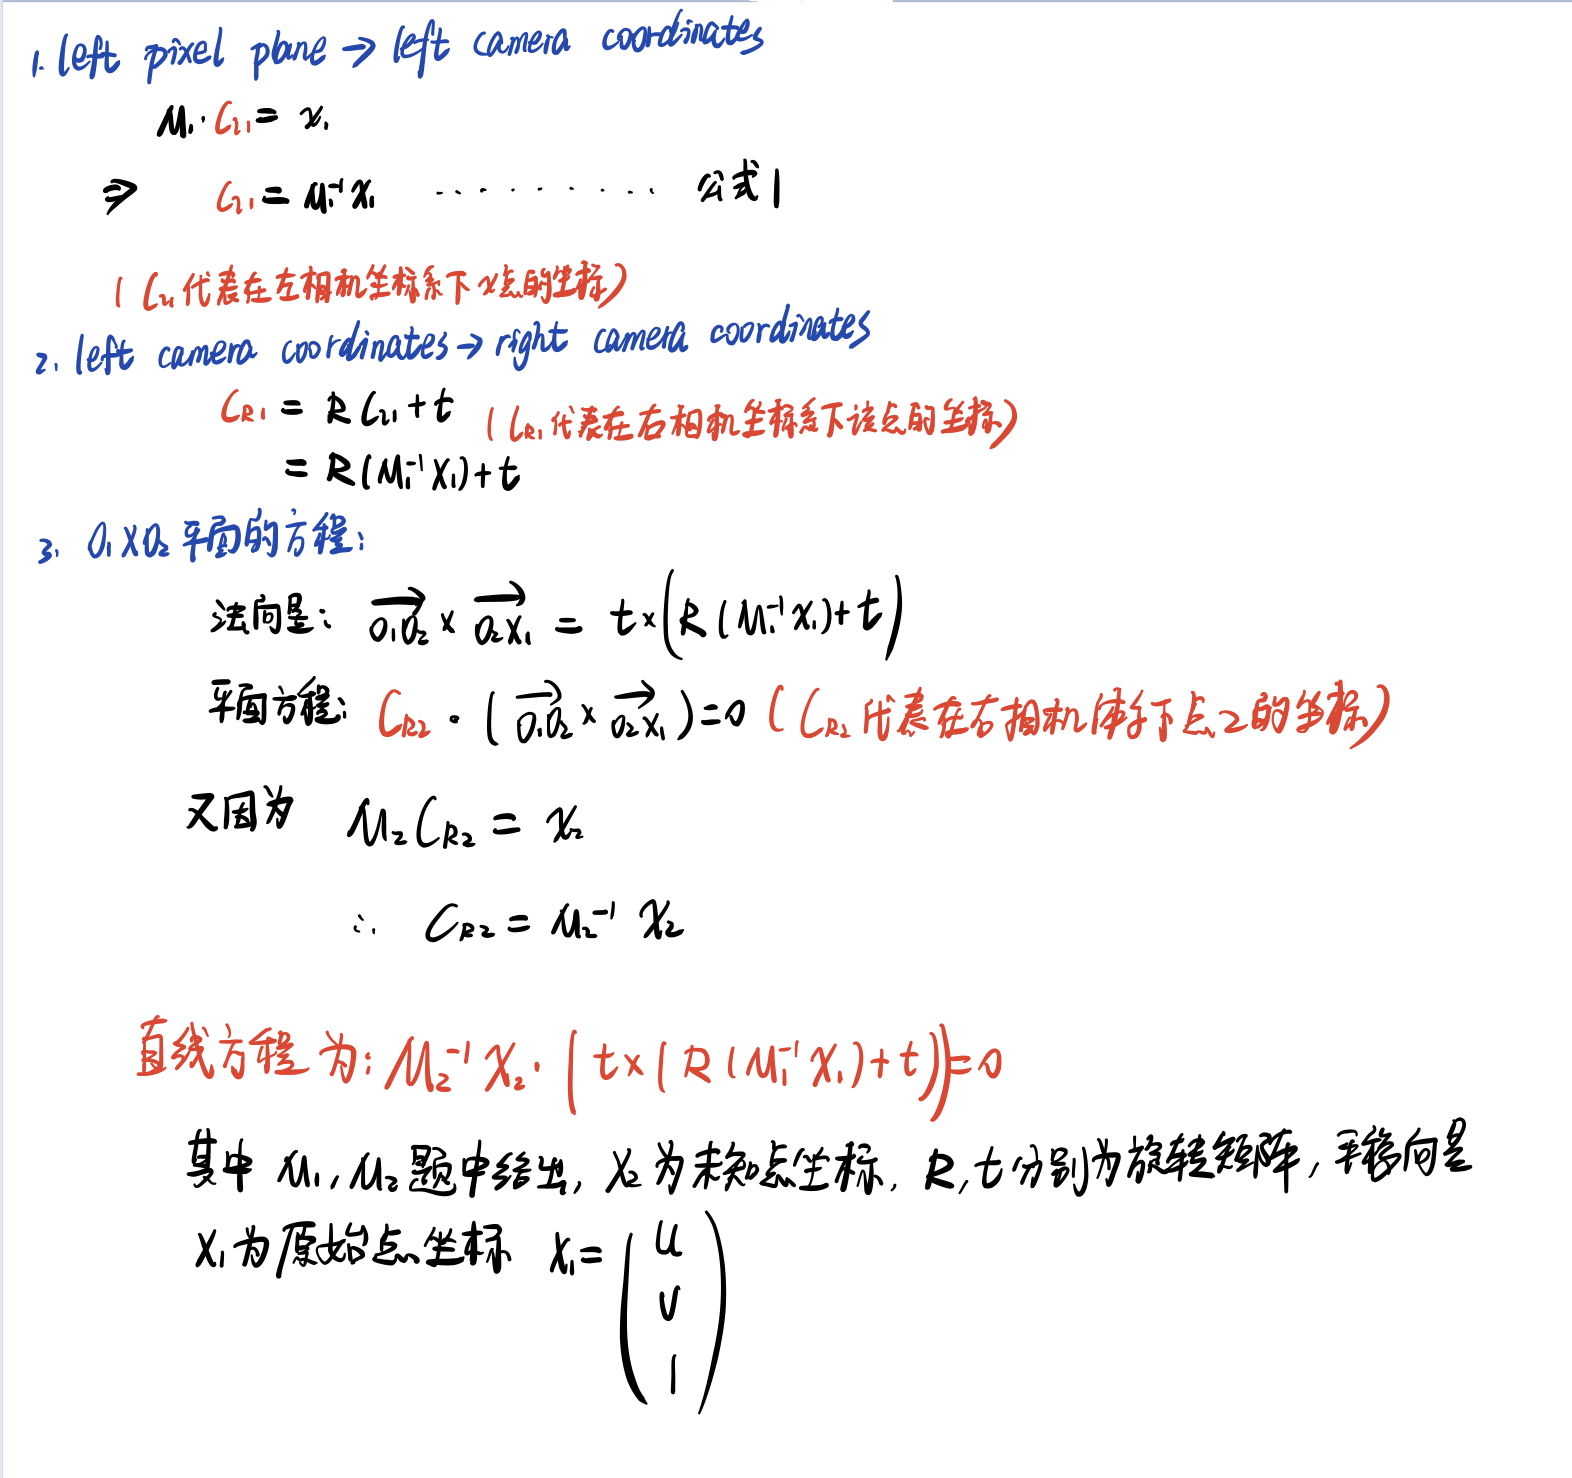 1. left pixel plane → left camera coordinates
M₁·C₁₁ = x₁
⇒ C₁₁ = M₁⁻¹x₁ ········ 公式1
(C₁₁代表在左相机坐标系下x点的坐标)
2. left camera coordinates → right camera coordinates
C_R1 = R C₁₁ + t (C_R1代表在右相机坐标系下该点的坐标)
= R(M₁⁻¹x₁)+t
3. O₁XO₂平面的方程:
法向量: O₁O₂→ × O₂X₁→ = t×(R(M₁⁻¹x₁)+t)
平面方程: C_R2 · (O₁O₂→ × O₂X₁→)=0 (C_R2代表在右相机体系下点2的坐标)
又因为 M₂C_R2 = x₂
∴ C_R2 = M₂⁻¹ x₂
直线方程为: M₂⁻¹x₂·(t×(R(M₁⁻¹x₁)+t))=0
其中 M₁, M₂题中给出, x₂为未知点坐标, R, t分别为旋转矩阵, 平移向量
x₁为原始点坐标 x₁=(u
v
1)